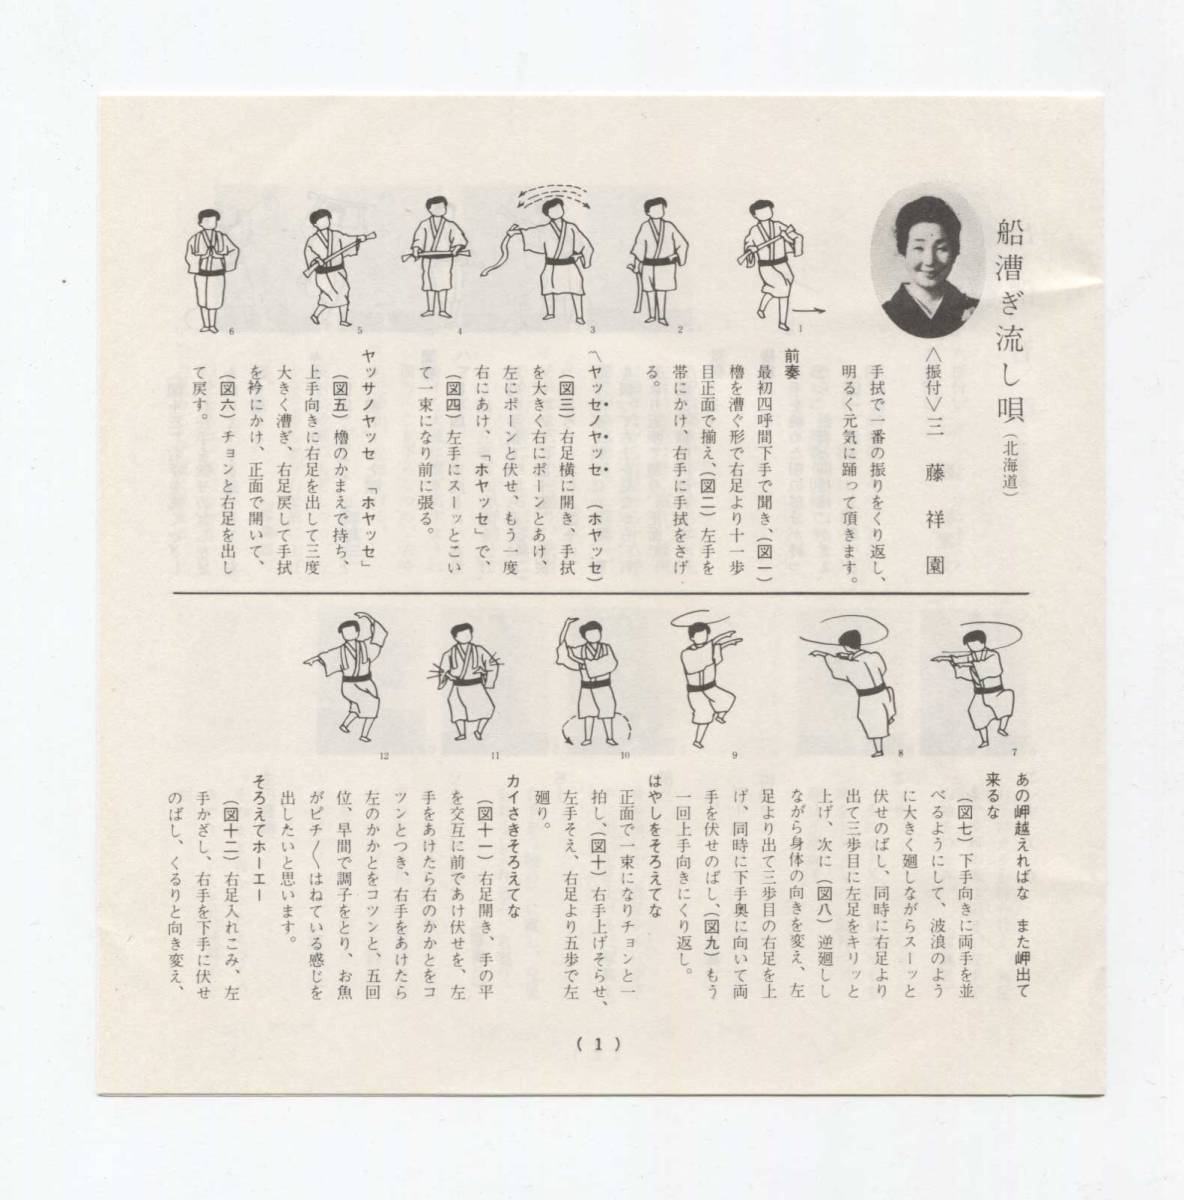 船漕ぎ流し唄(北海道)
<振付>三藤祥園
手拭で一番の振りをくり返し、
明るく元気に踊って頂きます。
前奏
最初四呼間下手で聞き、(図一)
櫓を漕ぐ形で右足より十一歩
目正面で揃え、(図二)左手を
帯にかけ、右手に手拭をさげ
る。
〽ヤッセノヤッセ (ホヤッセ)
(図三)右足横に開き、手拭
を大きく右にポーンとあけ、
左にポーンと伏せ、もう一度
右にあけ、「ホヤッセ」で、
(図四)左手にスーッとこい
て一束になり前に張る。
ヤッサノヤッセ 「ホヤッセ」
(図五)櫓のかまえで持ち、
上手向きに右足を出して三度
大きく漕ぎ、右足戻して手拭
を衿にかけ、正面で開いて、
(図六)チョンと右足を出し
て戻す。
1
2
3
4
5
6
あの岬越えればな また岬出て
来るな
(図七)下手向きに両手を並
べるようにして、波浪のよう
に大きく廻しながらスーッと
伏せのばし、同時に右足より
出て三歩目に左足をキリッと
上げ、次に(図八)逆廻しし
ながら身体の向きを変え、左
足より出て三歩目の右足を上
げ、同時に下手奥に向いて両
手を伏せのばし、(図九)もう
一回上手向きにくり返し。
はやしをそろえてな
正面で一束になりチョンと一
拍し、(図十)右手上げそらせ、
左手そえ、右足より五歩で左
廻り。
カイさきそろえてな
(図十一)右足開き、手の平
を交互に前であけ伏せを、左
手をあけたら右のかかとをコ
ツンとつき、右手をあけたら
左のかかとをコツンと、五回
位、早間で調子をとり、お魚
がピチ〳〵はねている感じを
出したいと思います。
そろえてホーエー
(図十二)右足入れこみ、左
手かざし、右手を下手に伏せ
のばし、くるりと向き変え、
7
8
9
10
11
12
(1)